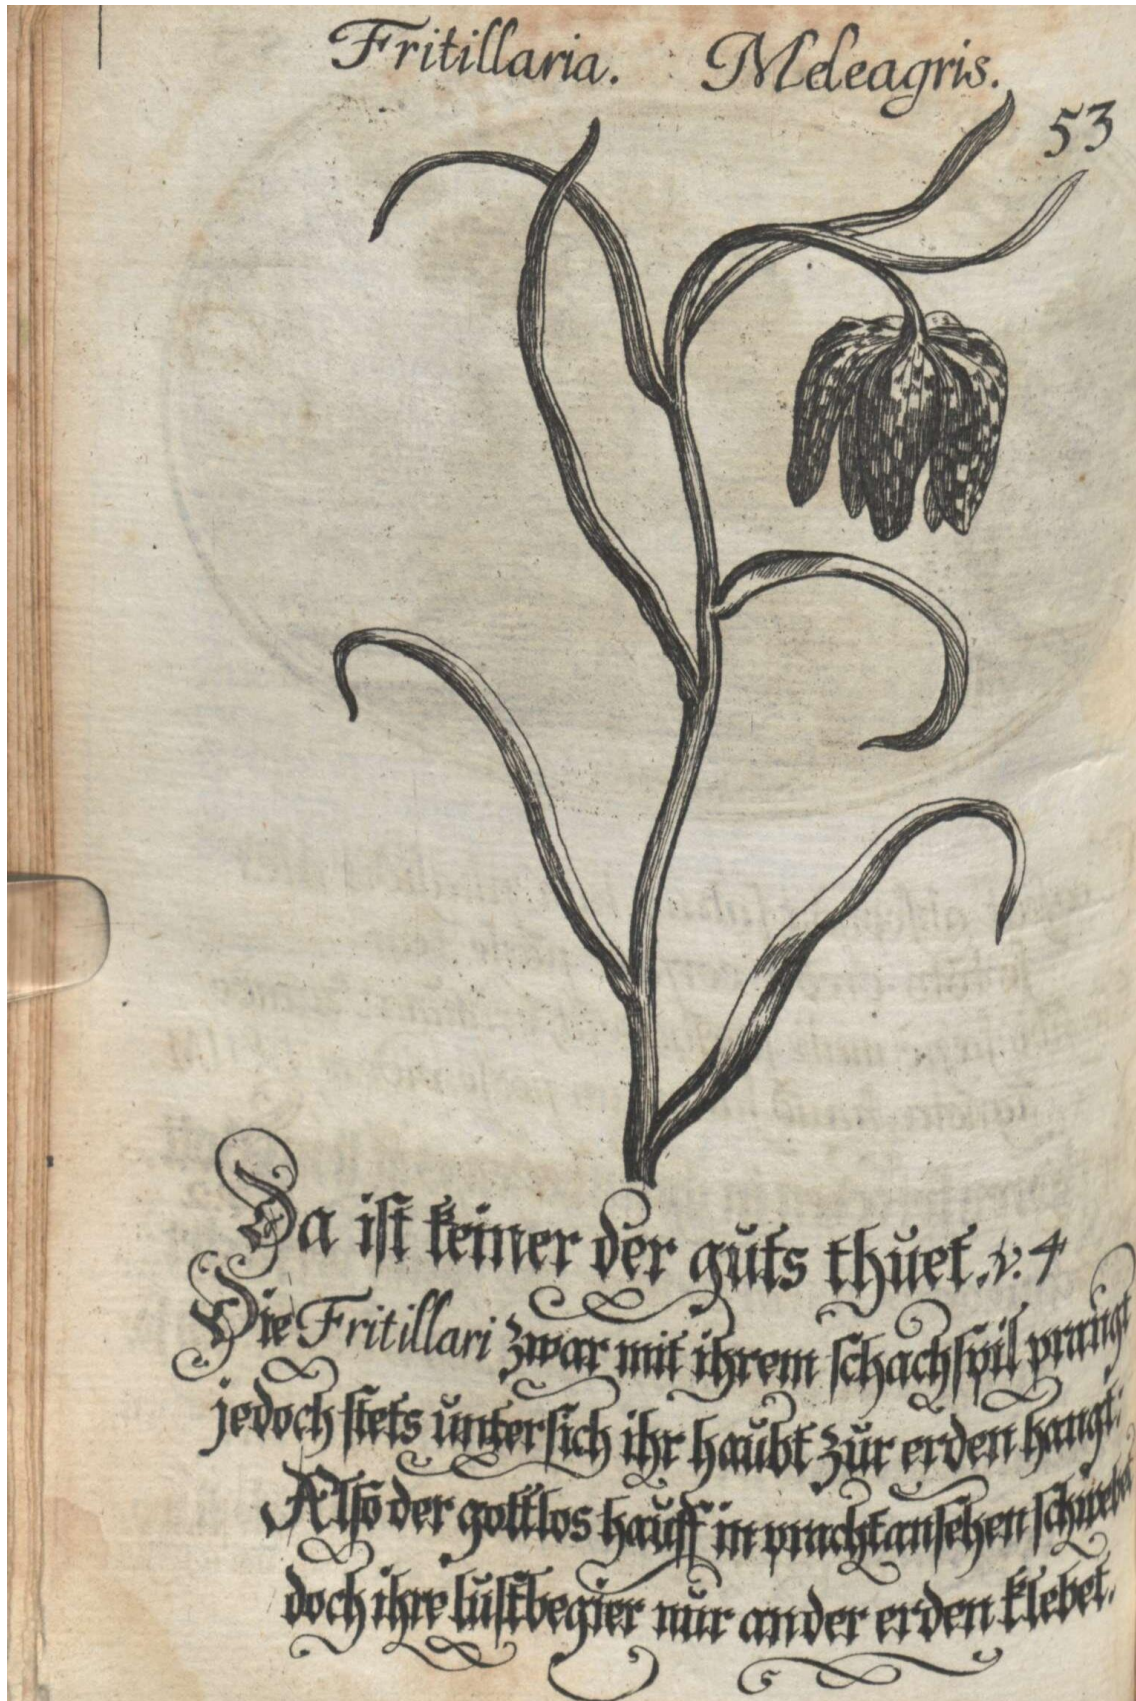 Fritillaria. Meleagris.
53
Da ist keiner der gůts thůet. v. 4
Die Fritillari zwar mit ihrem schachspil prangt
jedoch stets ůntersich ihr haůbt zůr erden hangt:
Also der gottlos haůff in prachtansehen schwebet
doch ihre lůstbegier nůr an der erden klebet.